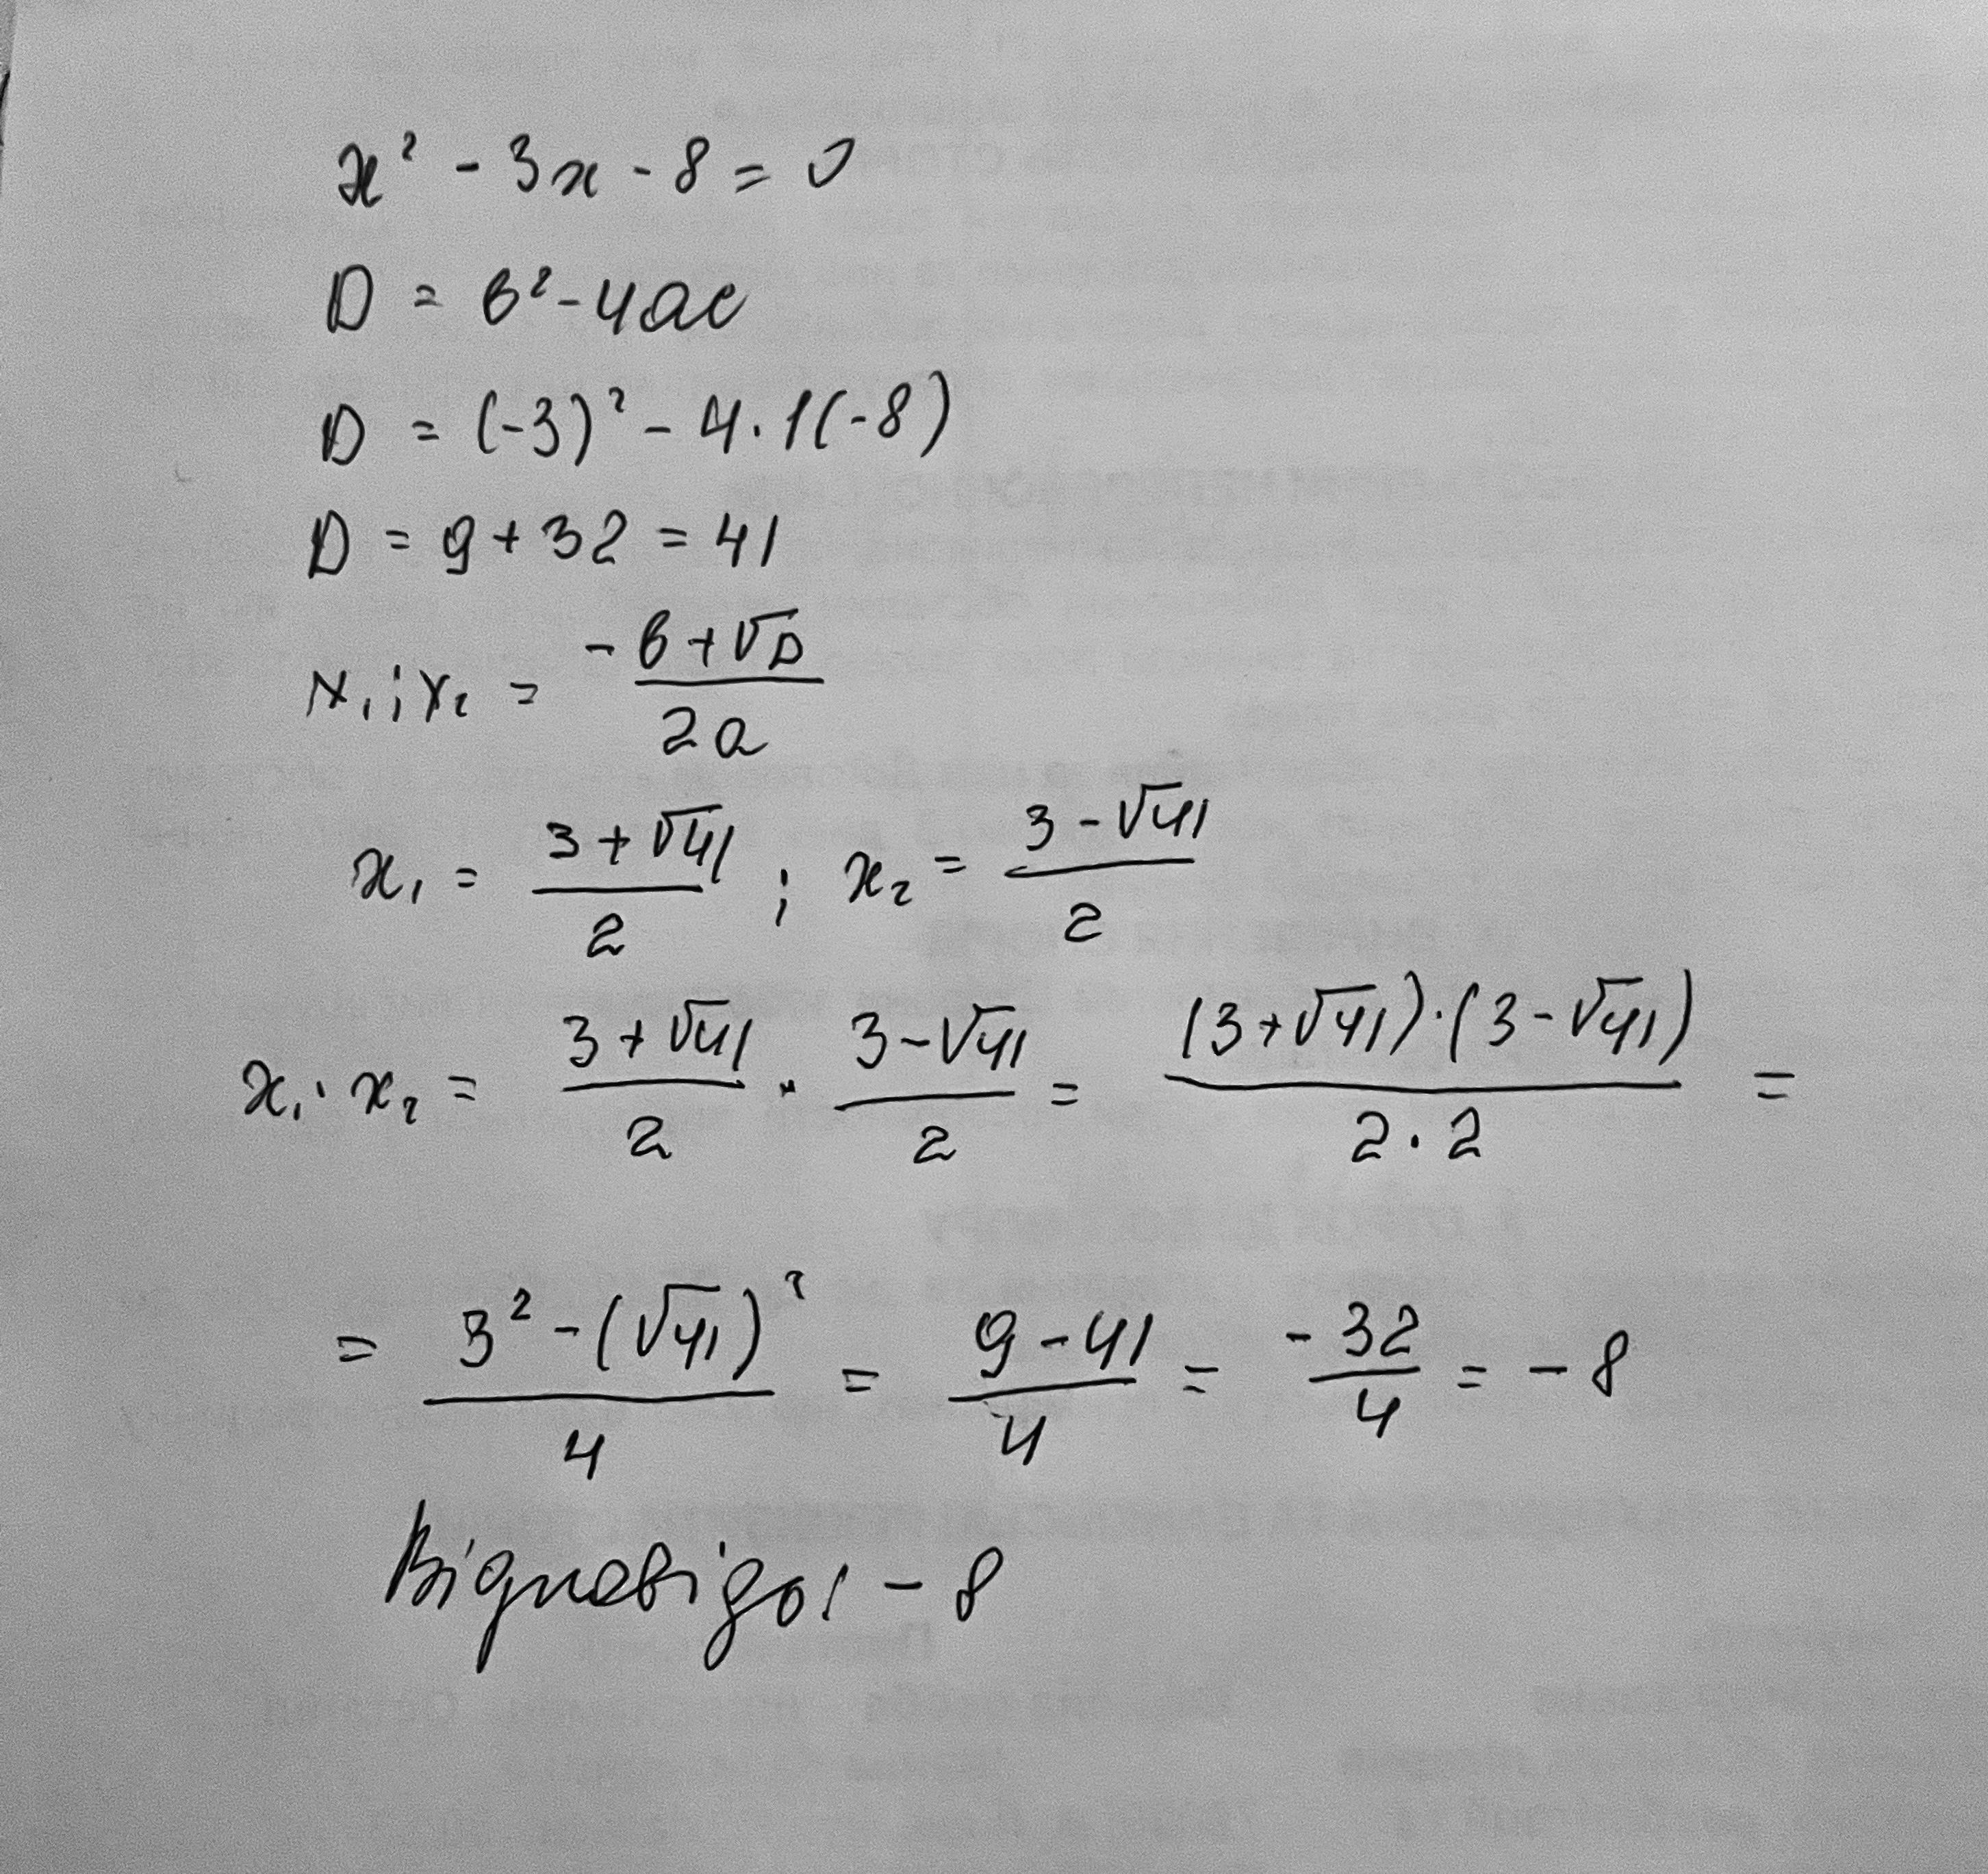 x² - 3x - 8 = 0
D = в² - 4ac
D = (-3)² - 4 · 1(-8)
D = 9 + 32 = 41
x₁; x₂ = -в + √D / 2a
x₁ = 3 + √41 / 2 ; x₂ = 3 - √41 / 2
x₁ · x₂ = 3 + √41 / 2 · 3 - √41 / 2 = (3 + √41) · (3 - √41) / 2 · 2 =
= 3² - (√41)² / 4 = 9 - 41 / 4 = -32 / 4 = -8
Відповідь: - 8